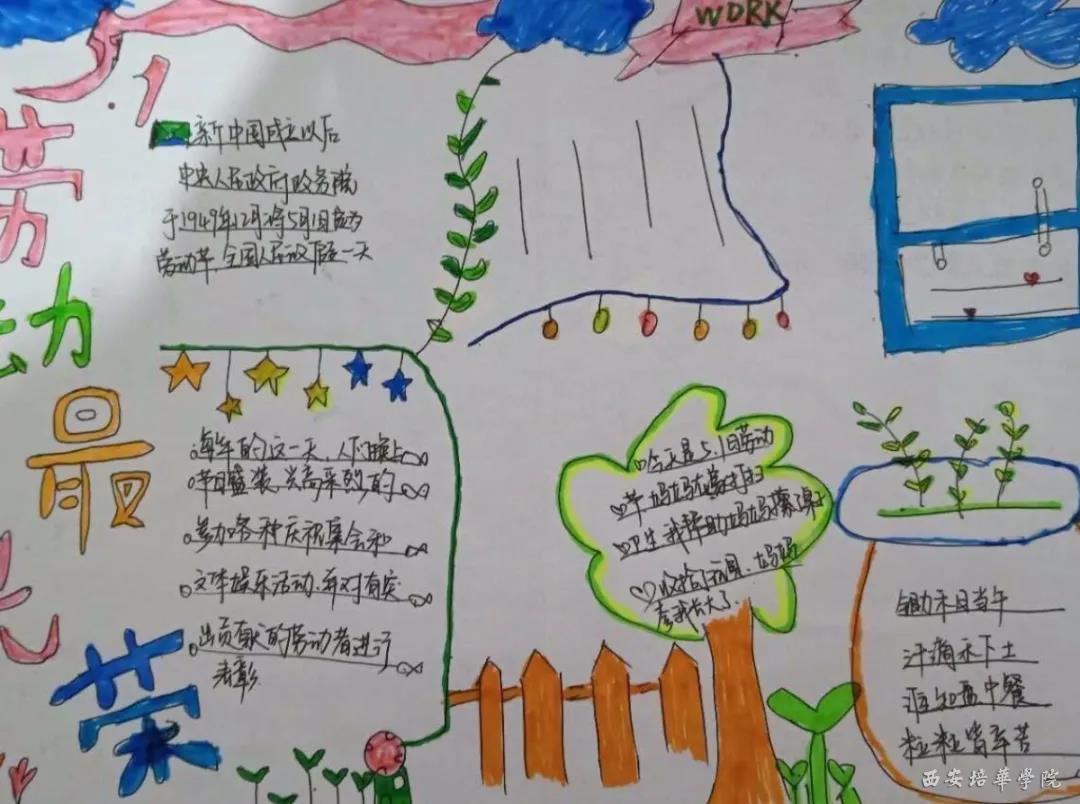 WORK
5.1
劳
动
最
光
荣
新中国成立以后
中央人民政府政务院
于1949年12月将5月1日定为
劳动节,全国人民放假一天
每年的这一天,人们换上
节日盛装,兴高采烈的
参加各种庆祝集会和
文体娱乐活动,并对有突
出贡献的劳动者进行
表彰
今天是5.1日劳动
节 妈妈在家打扫
卫生 我帮助妈妈擦桌子
收拾了玩具,妈妈
夸我长大了
锄禾日当午
汗滴禾下土
谁知盘中餐
粒粒皆辛苦
西安培華學院